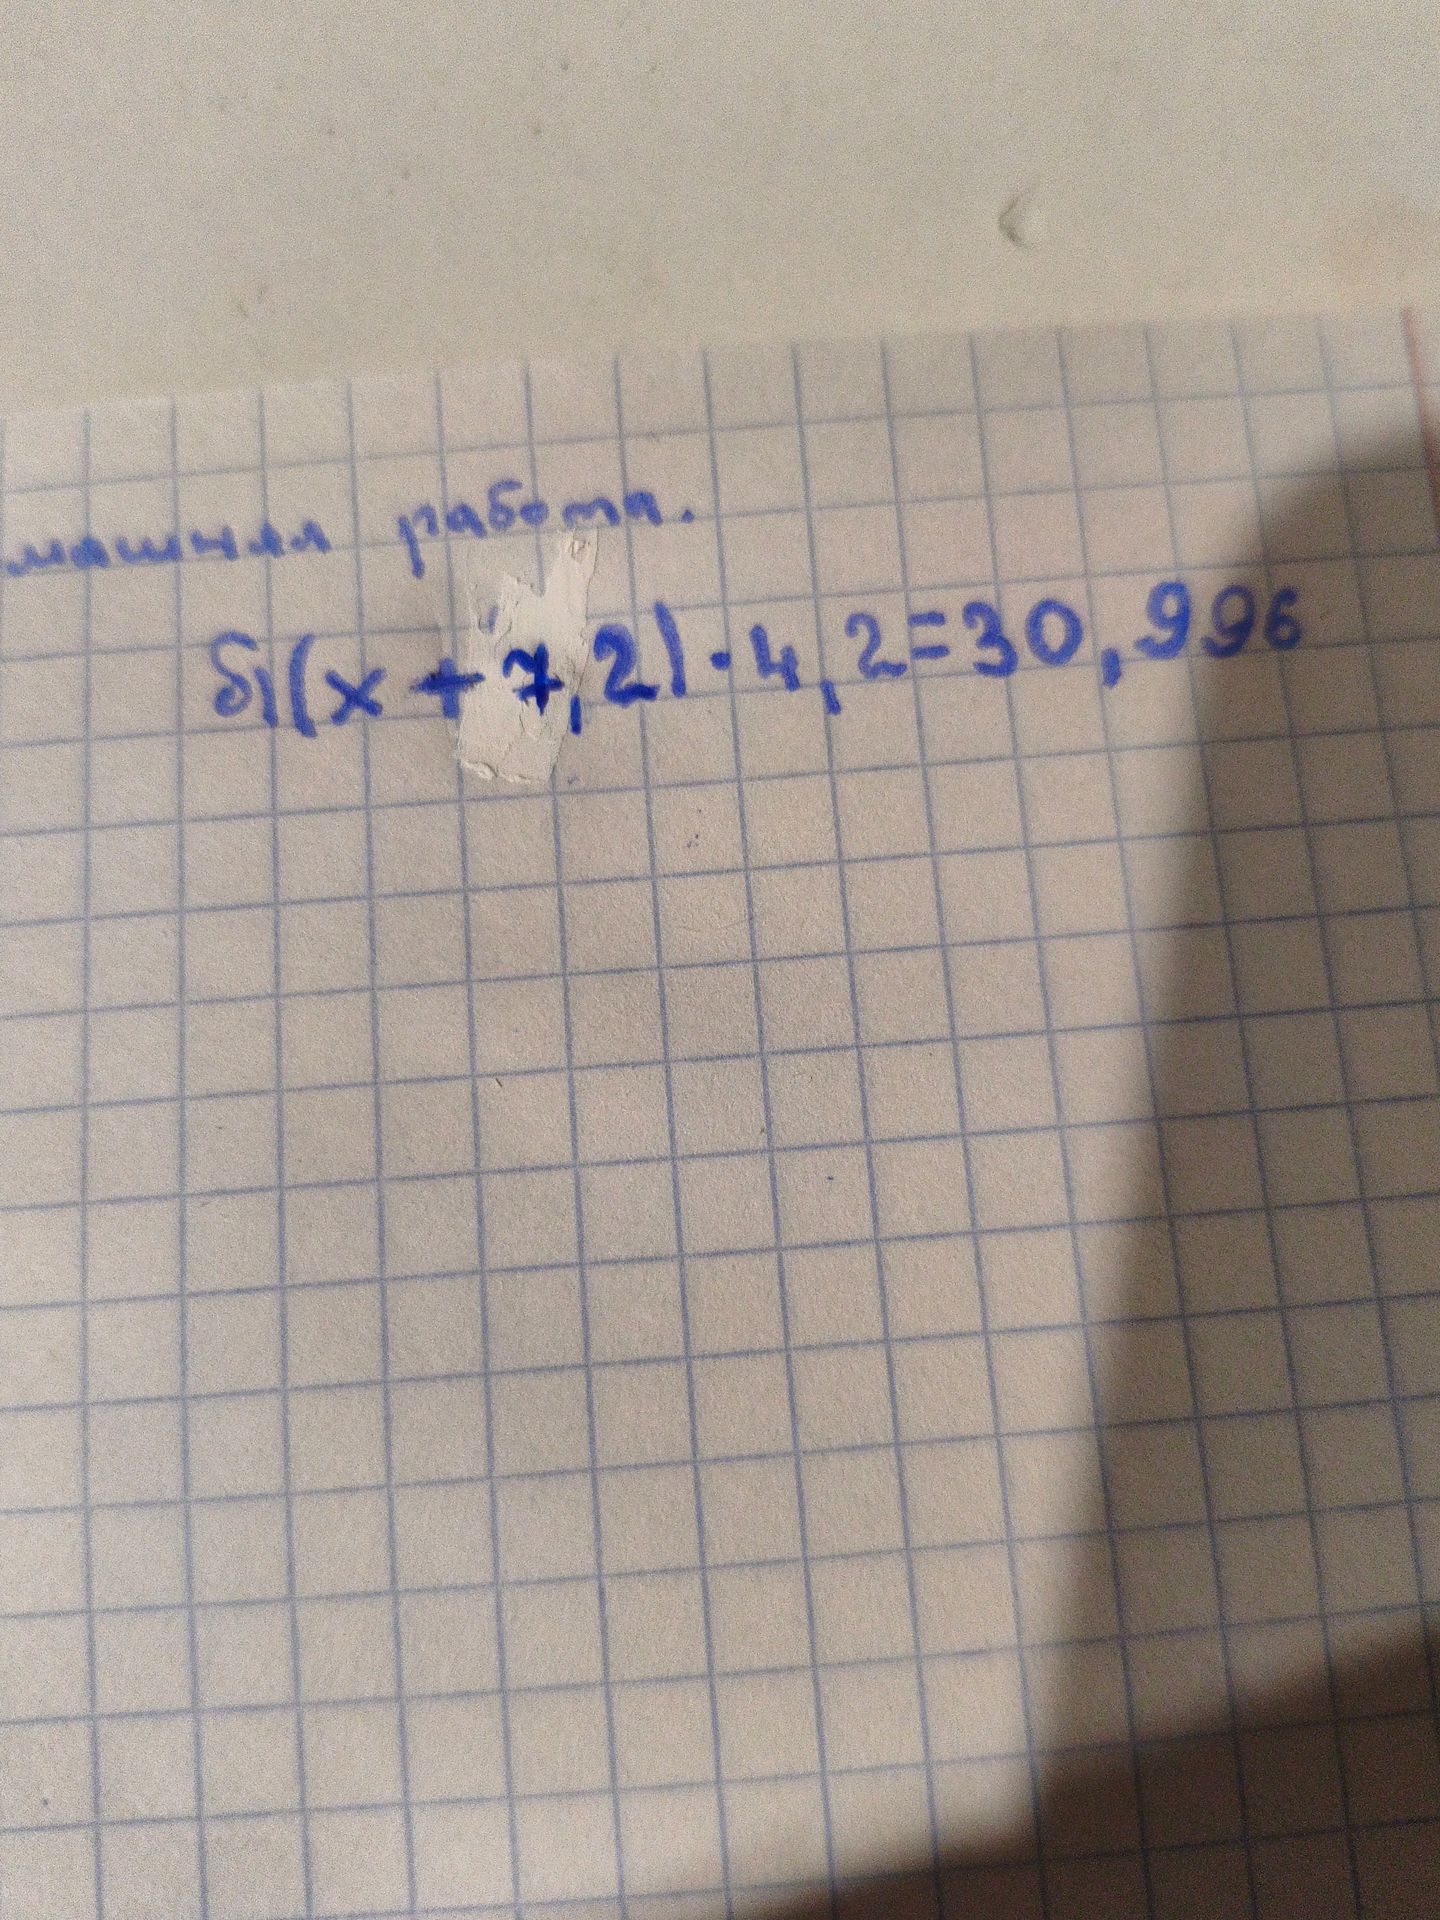 машняя работа.
б)(x + 7,2) · 4,2=30,996